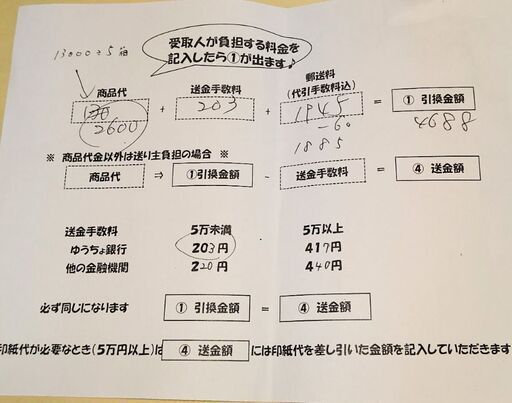 受取人が負担する料金を
記入したら①が出ます♪
商品代 送金手数料 郵送料
(代引手数料込)
2600 + 203 + 1945 = ① 引換金額
-60 4688
1885
※ 商品代金以外は送り主負担の場合 ※
商品代 ⇒ ①引換金額 - 送金手数料 = ④ 送金額
送金手数料 5万未満 5万以上
ゆうちょ銀行 203円 417円
他の金融機関 220円 440円
必ず同じになります ① 引換金額 = ④ 送金額
印紙代が必要なとき(5万円以上)は ④ 送金額 には印紙代を差し引いた金額を記入していただきます